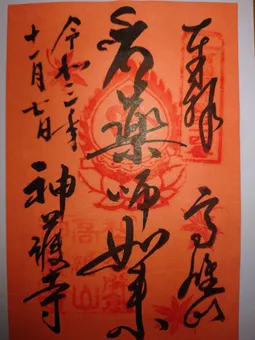 奉拝 高雄山
薬師如来
令和二年
十一月七日
神護寺